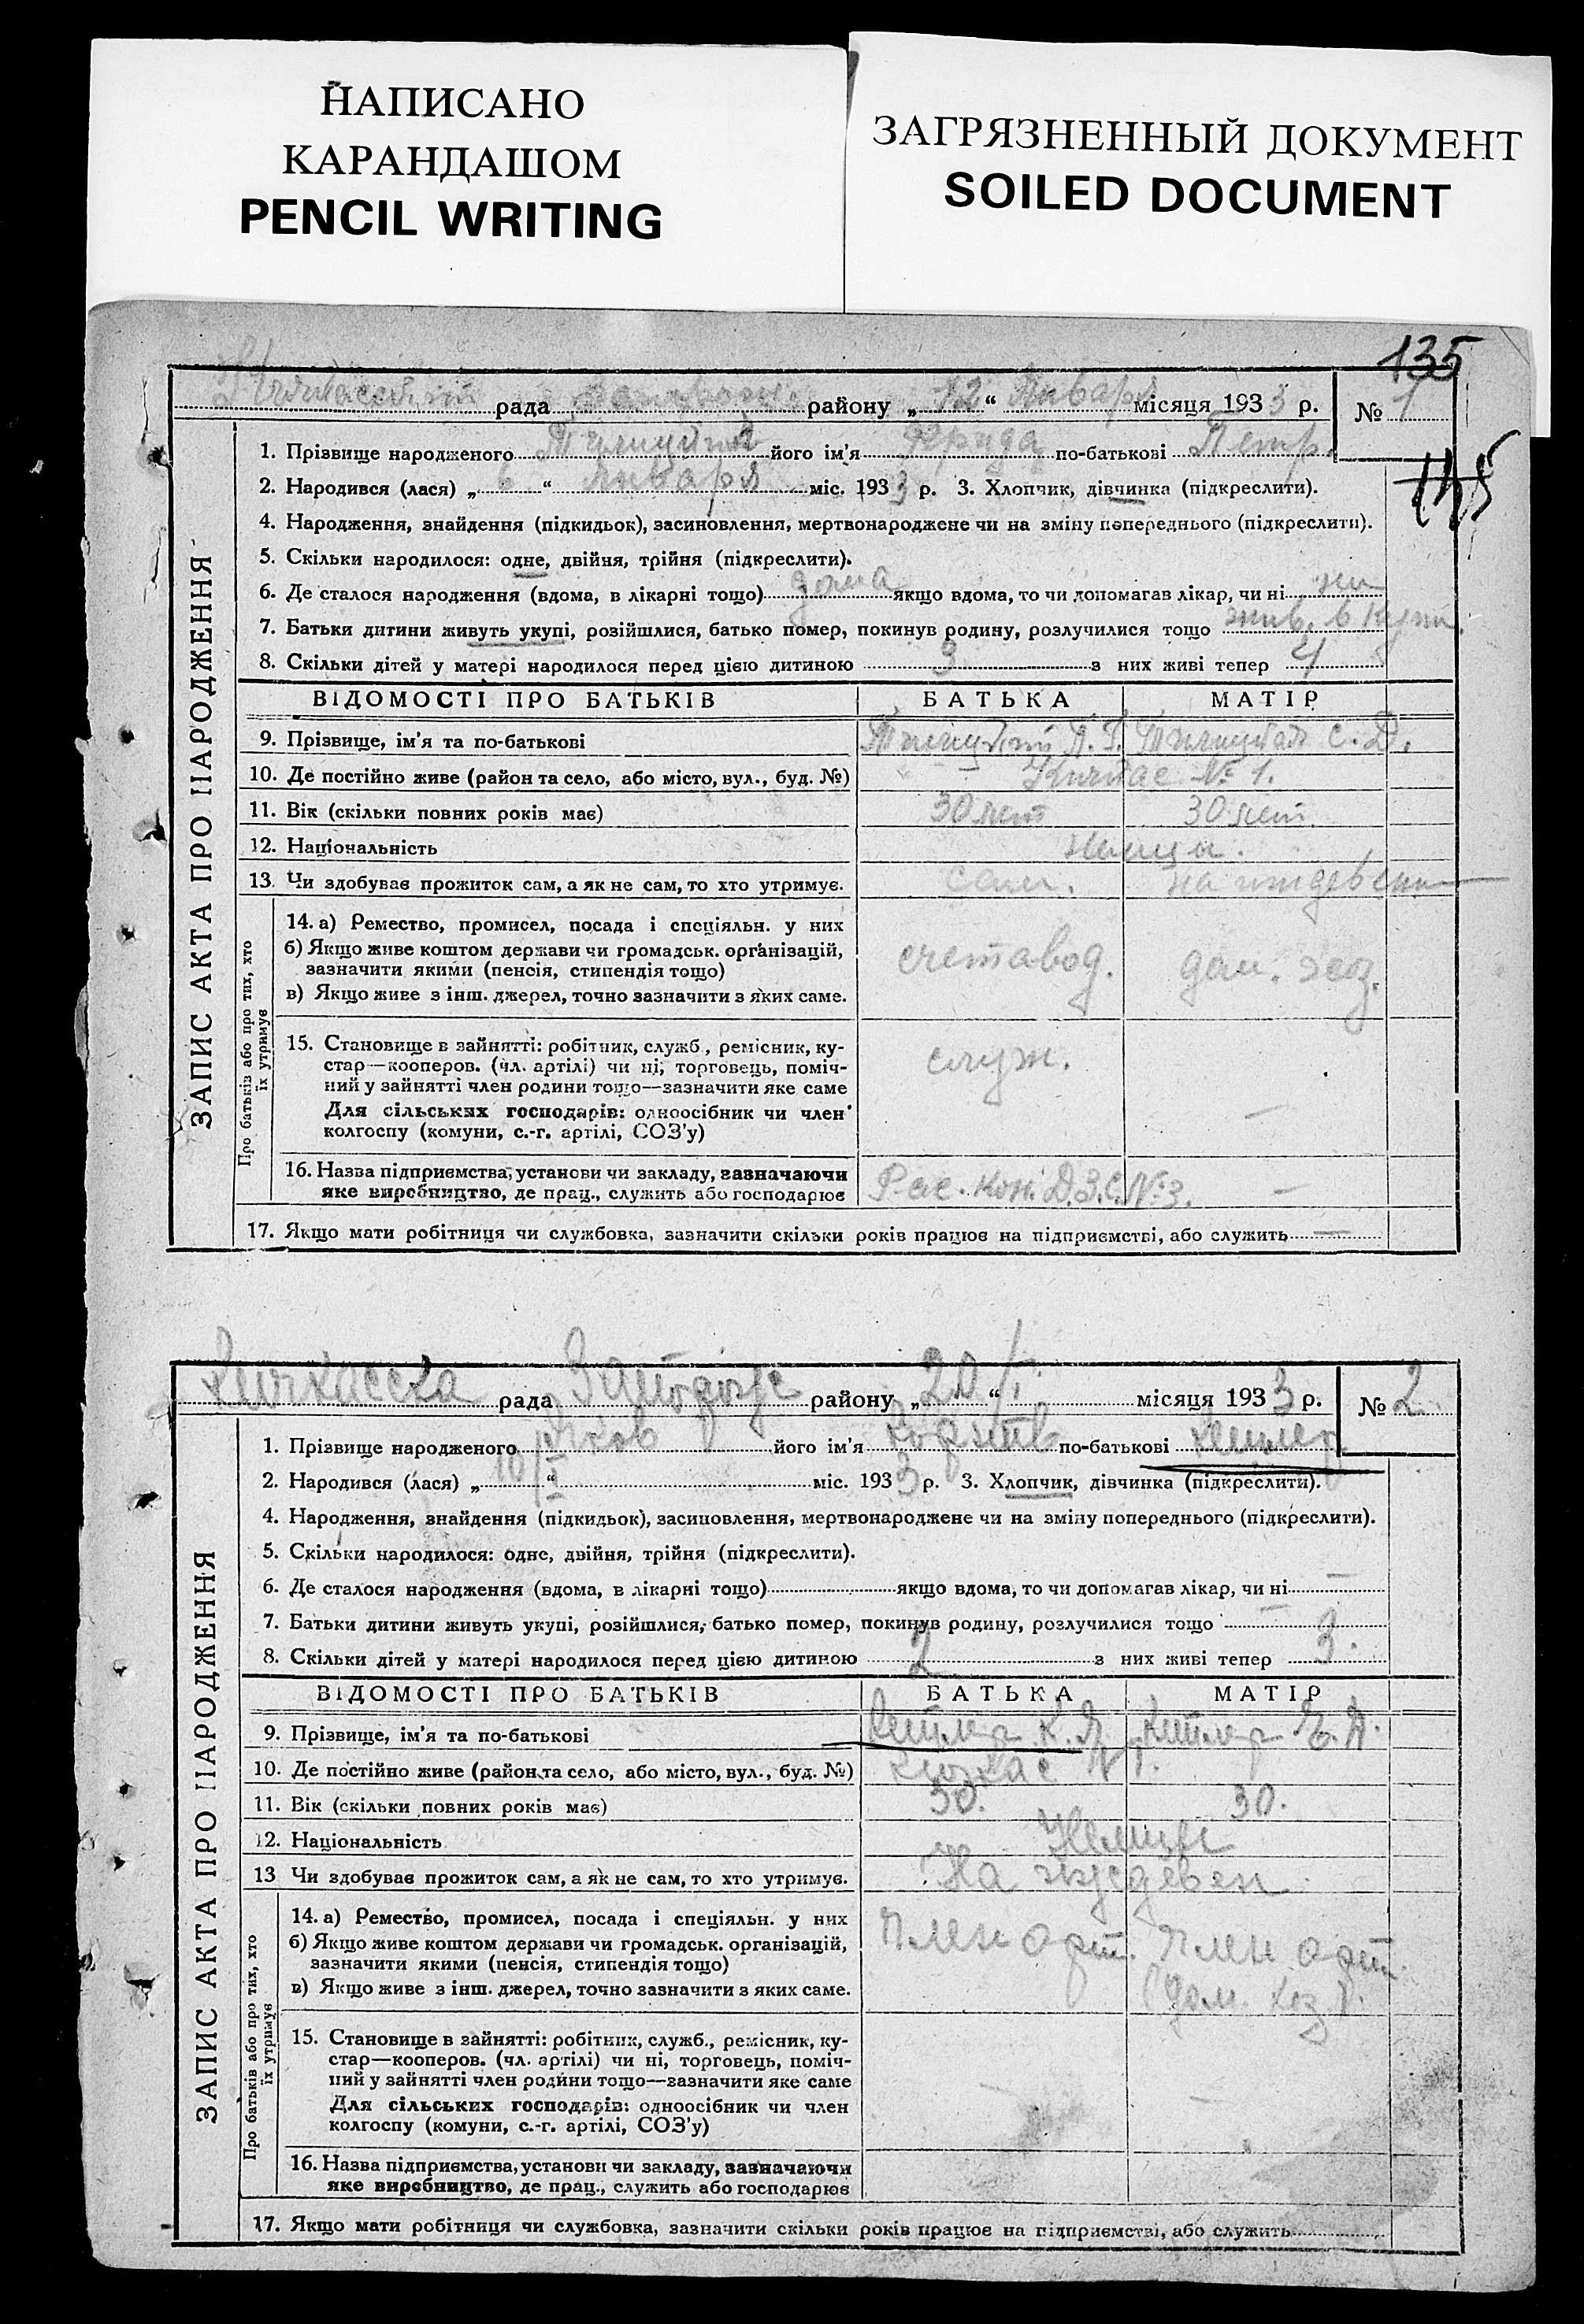 НАПИСАНО
КАРАНДАШОМ
PENCIL WRITING
ЗАГРЯЗНЕННЫЙ ДОКУМЕНТ
SOILED DOCUMENT
135
рада району „12“ Января місяця 1933 р. № 1
145
ЗАПИС АКТА ПРО НАРОДЖЕННЯ
1. Прізвище народженого його ім'я Фрида по-батькові Петр.
2. Народився (лася) „6“ января міс. 1933 р. 3. Хлопчик, дівчинка (підкреслити).
4. Народження, знайдення (підкидьок), засиновлення, мертвонароджене чи на зміну попереднього (підкреслити).
5. Скільки народилося: одне, двійня, трійня (підкреслити).
6. Де сталося народження (вдома, в лікарні тощо) дома якщо вдома, то чи допомагав лікар, чи ні
7. Батьки дитини живуть укупі, розійшлися, батько помер, покинув родину, розлучилися тощо жив. в купе.
8. Скільки дітей у матері народилося перед цією дитиною 3 з них живі тепер 4
ВІДОМОСТІ ПРО БАТЬКІВ БАТЬКА МАТІР
9. Прізвище, ім'я та по-батькові П. Г. С. Д.
10. Де постійно живе (район та село, або місто, вул., буд. №) Кичкас № 1.
11. Вік (скільки повних років має) 30 лет 30 лет.
12. Національність немцы.
13. Чи здобував прожиток сам, а як не сам, то хто утримує. сам. на иждевени
Про батьків або про тих, хто
їх утримує
14. а) Ремество, промисел, посада і спеціяльн. у них
б) Якщо живе коштом держави чи громадськ. організацій,
зазначити якими (пенсія, стипендія тощо) счетавод. дом. хоз.
в) Якщо живе з інш. джерел, точно зазначити з яких саме.
15. Становище в зайнятті: робітник, служб., ремісник, ку-
стар—кооперов. (чл. артілі) чи ні, торговець, поміч- служ.
ний у зайнятті член родини тощо—зазначити яке саме
Для сільських господарів: одноосібник чи член —
колгоспу (комуни, с.-г. артілі, СОЗ'у)
16. Назва підприємства, установи чи закладу, зазначаючи
яке виробництво, де прац., служить або господарює Д.З.С. №3. —
17. Якщо мати робітниця чи службовка, зазначити скільки років працює на підприємстві, або служить —
Кичкасска рада Запорожс району „20/I“ місяця 1933 р. № 2
ЗАПИС АКТА ПРО НАРОДЖЕННЯ
1. Прізвище народженого Яков його ім'я по-батькові
2. Народився (лася) „10/I“ міс. 1933 р. 3. Хлопчик, дівчинка (підкреслити).
4. Народження, знайдення (підкидьок), засиновлення, мертвонароджене чи на зміну попереднього (підкреслити).
5. Скільки народилося: одне, двійня, трійня (підкреслити).
6. Де сталося народження (вдома, в лікарні тощо) якщо вдома, то чи допомагав лікар, чи ні —
7. Батьки дитини живуть укупі, розійшлися, батько помер, покинув родину, розлучилися тощо —
8. Скільки дітей у матері народилося перед цією дитиною 2 з них живі тепер 3.
ВІДОМОСТІ ПРО БАТЬКІВ БАТЬКА МАТІР
9. Прізвище, ім'я та по-батькові К. Я.
10. Де постійно живе (район та село, або місто, вул., буд. №) Кичкас № 1.
11. Вік (скільки повних років має) 30. 30.
12. Національність Немцы
13 Чи здобував прожиток сам, а як не сам, то хто утримує. На иждевен.
Про батьків або про тих, хто
їх утримує
14. а) Ремество, промисел, посада і спеціяльн. у них
б) Якщо живе коштом держави чи громадськ. організацій, член арт. член арт.
зазначити якими (пенсія, стипендія тощо)
в) Якщо живе з інш. джерел, точно зазначити з яких саме. (дом. хоз).
15. Становище в зайнятті: робітник, служб., ремісник, ку-
стар—кооперов. (чл. артілі) чи ні, торговець, поміч-
ний у зайнятті член родини тощо—зазначити яке саме
Для сільських господарів: одноосібник чи член
колгоспу (комуни, с.-г. артілі, СОЗ'у)
16. Назва підприємства, установи чи закладу, зазначаючи
яке виробництво, де прац., служить або господарює
17. Якщо мати робітниця чи службовка, зазначити скільки років працює на підприємстві, або служить